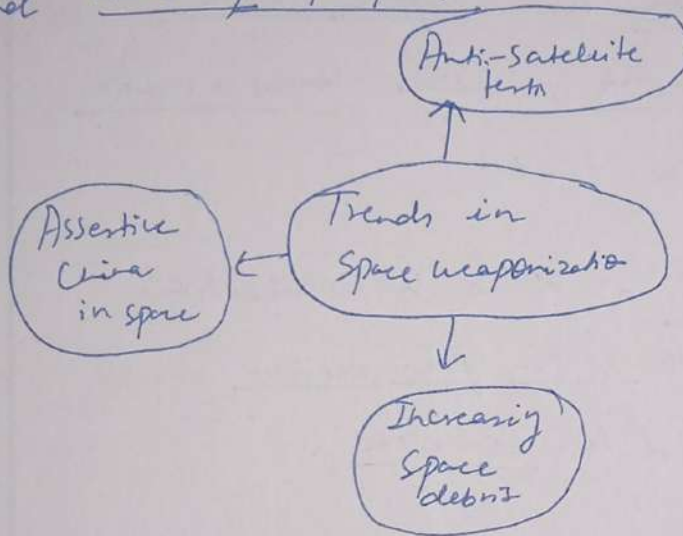 Anti-satellite
tests
Trends in
Space weaponization
Assertive
China
in space
Increasing
Space
debris